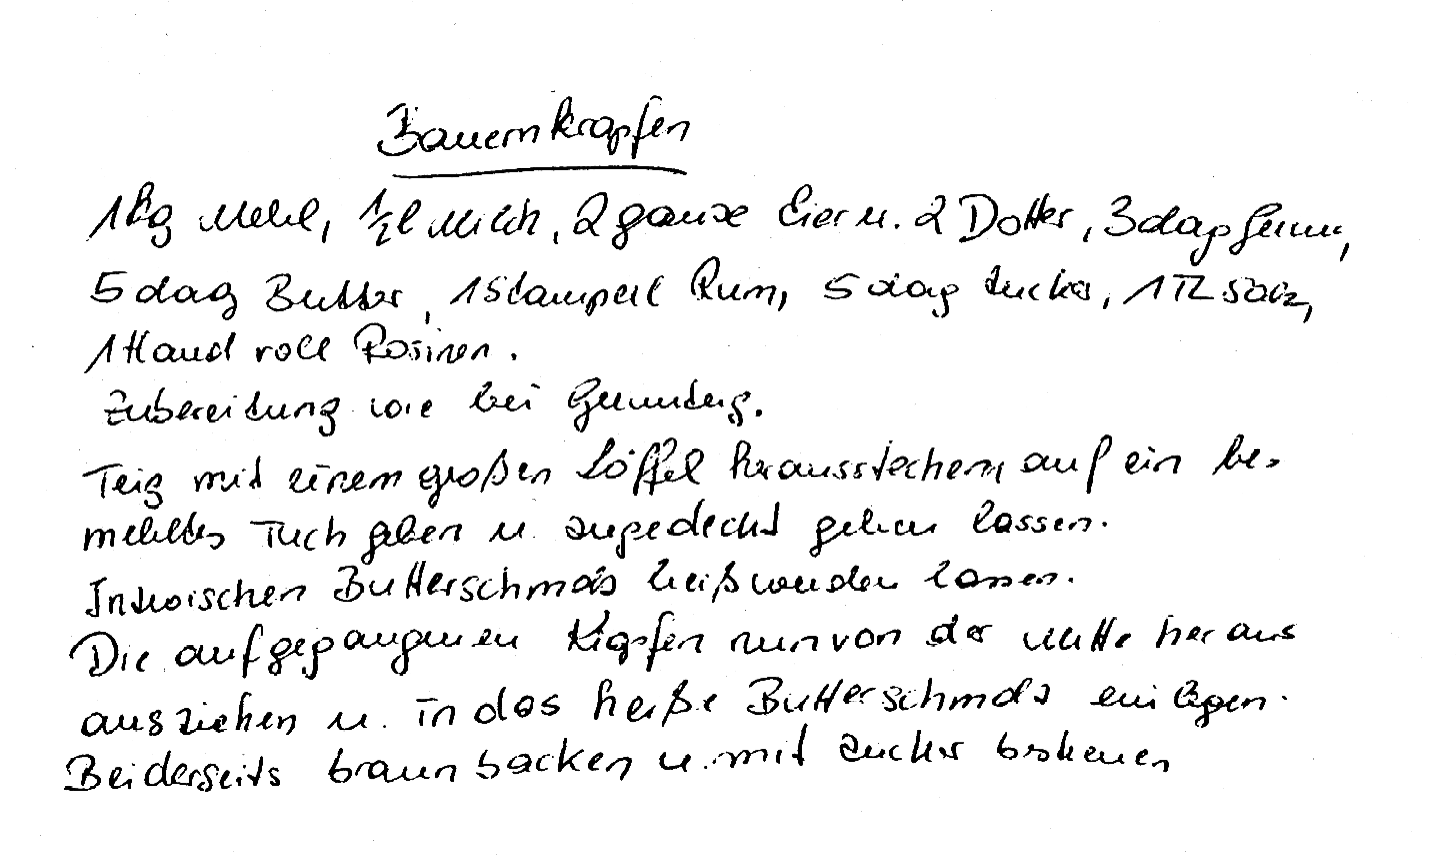 Bauernkrapfen
1kg Mehl, 1/2 l Milch, 2 ganze Eier u. 2 Dotter, 3 dag Germ,
5 dag Butter, 1 Stamperl Rum, 5 dag Zucker, 1 TL Salz,
1 Hand voll Rosinen.
Zubereitung wie bei Germteig.
Teig mit einem großen Löffel herausstechen, auf ein be-
mehltes Tuch geben u. zugedeckt gehen lassen.
Inzwischen Butterschmalz heiß werden lassen.
Die aufgegangenen Krapfen nun von der Mitte heraus
ausziehen u. in das heiße Butterschmalz einlegen.
Beiderseits braun backen u. mit Zucker bestreuen